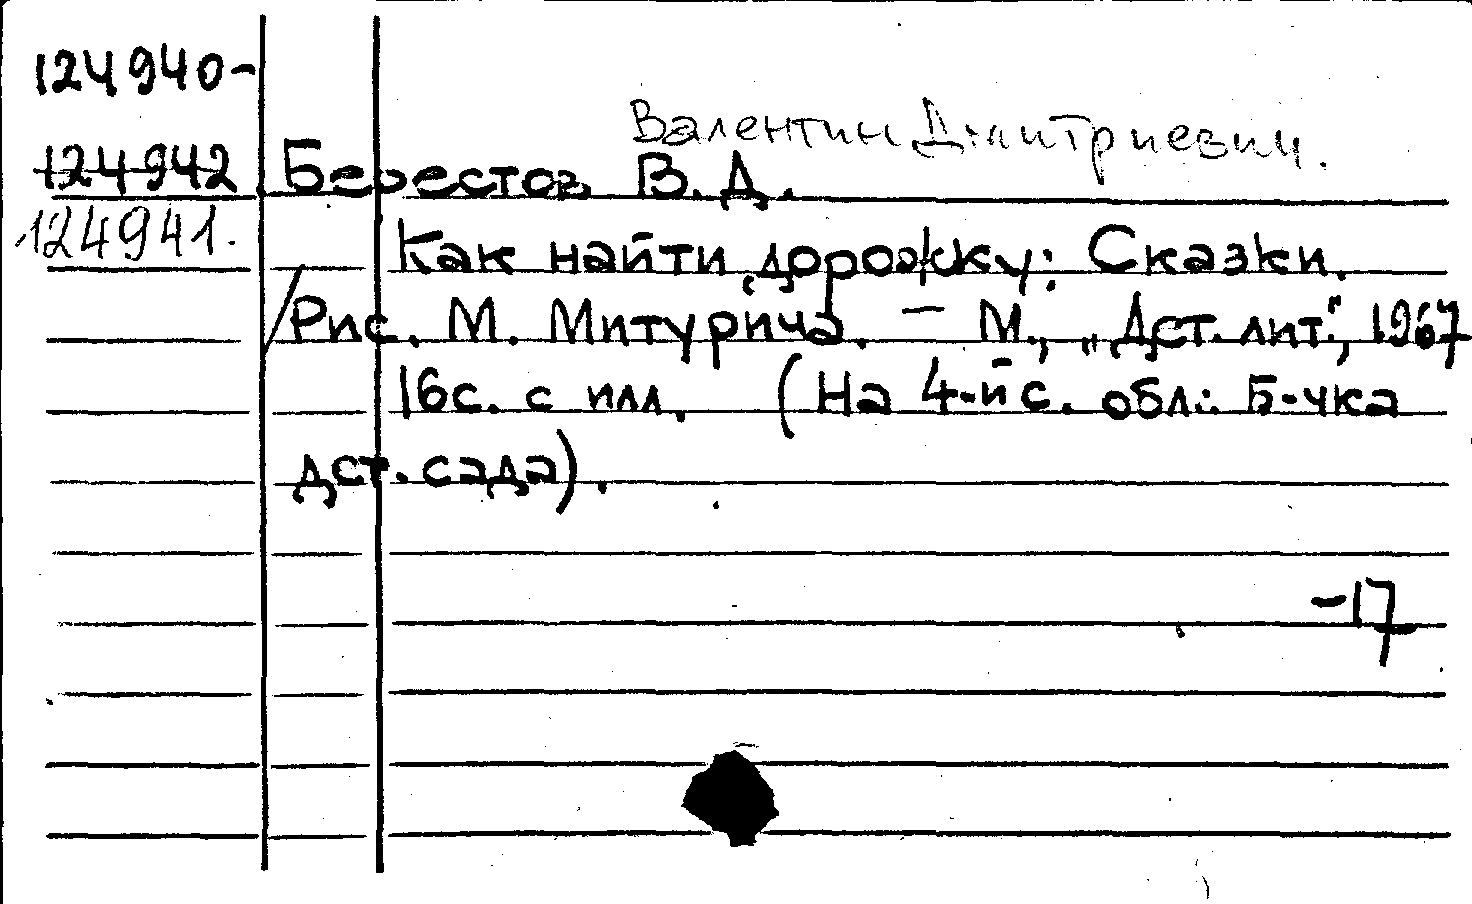 124940-
Валентин Дмитриевич.
124942 Берестов В. Д.
124941.
Как найти дорожку: Сказки.
/Рис. М. Митурича. - М., „Дет. лит.", 1967
16с. с илл. (На 4-й с. обл.: Б-чка
дет. сада).
-17